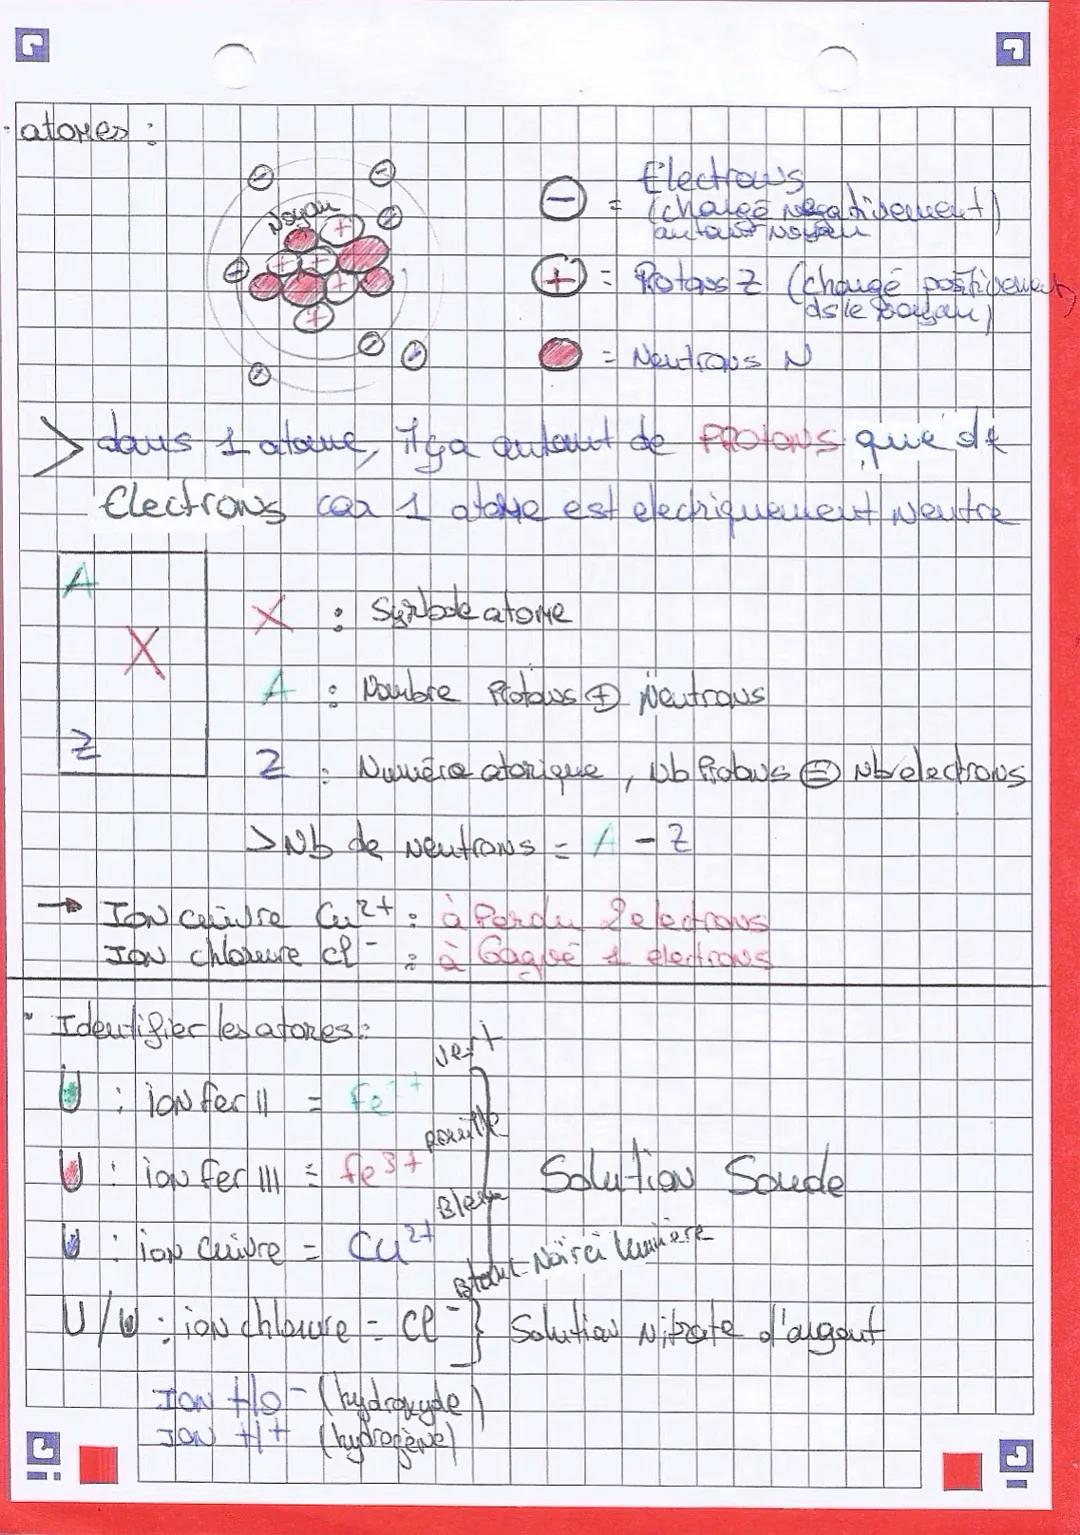 atomes :
Noyau
Electrons
= (chargé négativement)
autour noyau
= Protons Z (chargé positivement,
ds le noyau)
= Neutrons N
> dans 1 atome, il y a autant de Protons que de
Electrons car 1 atome est electriquement Neutre
A
X
Z
X : Symbole atome
A : Nombre Protons + Neutrons
Z : Numéro atomique, Nb Protons = Nb electrons
> Nb de Neutrons = A - Z
→ Ion cuivre Cu2+ : à Perdu 2 electrons
Ion chlorure Cl- : à Gagné 1 electrons
Identifier les atomes :
vert
: ion fer II = Fe2+
rouille
: ion fer III = fe3+
Solution Soude
Bleue
: ion Cuivre = Cu2+
Blanc Noirci lumière
U/U : ion chlorure = Cl- } Solution Nitrate d'argent
Ion HO- (hydroxyde)
Ion H+ (hydrogène)